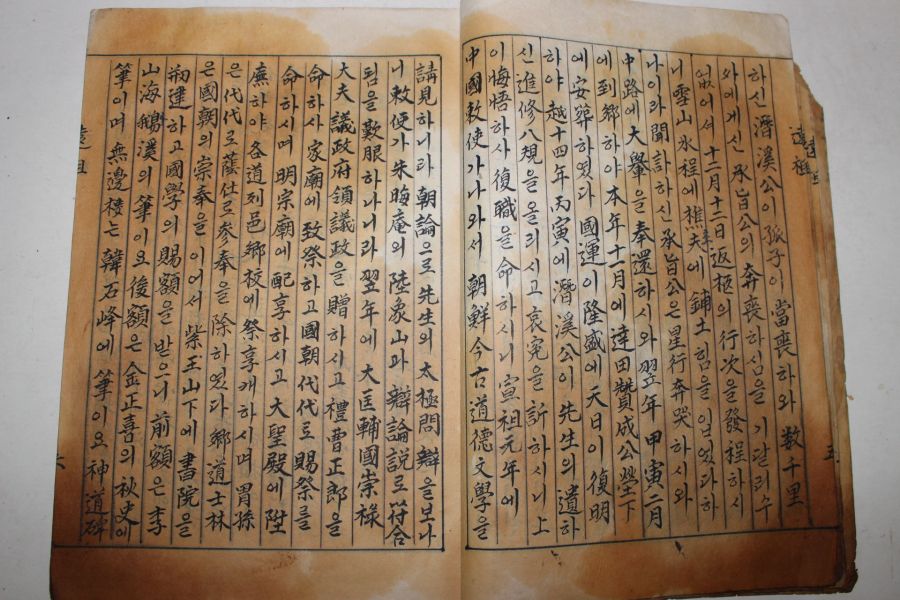 하신 潛溪公이 孤子이 當喪하와 數千里
와에게신 承旨公의 奔喪하심을 기달릴수
없어셔 十二月十二日 返柩의 行次을 發程하시
니 雪山氷程에 樵夫에 鋪土힘을 입엇다하
나이라 聞訃하신 承旨公은 星行奔哭하시와
中路에 大轝을 奉還하시와 翌年 甲寅二月
에 到鄕하야 本年十一月에 達田贊成公塋下
에 安葬하엿다 國運이 隆盛에 天日이 復明
하야 越十四年 丙寅에 潛溪公이 先生의 遺하
신 進修八規을 올리시고 哀寃을 訴하시니 上
이 悔悟하사 復職을 命하시니 宣祖元年에
中國敕使가 나와서 朝鮮今古道德文學을
請見하니라 朝論으로 先生의 太極問辯을 보나
니 敕使가 朱晦庵의 陸象山과 辯論說로 符合
됨을 歎服하나니라 翌年에 大匡輔國崇祿
大夫議政府領議政을 贈하시고 禮曹正郎을
命하사 家廟에 致祭하고 國朝代代로 賜祭를
命하시며 明宗廟에 配享하시고 大聖殿에 陞
廡하야 各道列邑鄕校에 祭享케하시며 胃孫
은 代代로 蔭仕로 參奉을 除하엿다 鄕道士林
은 國朝의 崇奉을 이어서 紫玉山下에 書院을
刱建하고 國學의 賜額을 받으니 前額은 李
山海 鵝溪의 筆이요 後額은 金正喜의 秋史에
筆이며 無邊樓는 韓石峰에 筆이요 神道碑
遠祖
五
遠祖
六